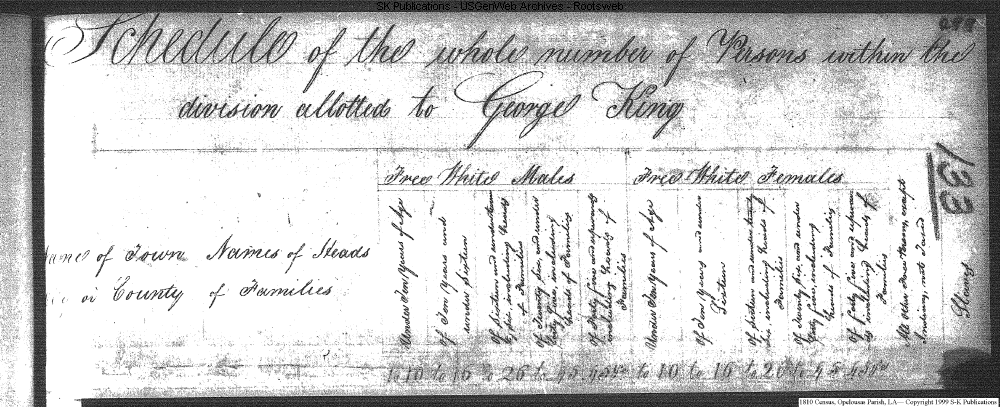 SK Publications - USGenWeb Archives - Rootsweb
Schedule of the whole number of Persons within the
division allotted to George King
133
Free White Males
Free White Females
of Town Names of Heads
or County of Families
Under Ten Years of Age
of Ten Years and under Sixteen
Of Sixteen and under twenty five, including Heads of Families
Of Twenty five, and under forty five, including Heads of Families
Of forty five and upwards including Heads of Families
Under Ten Years of Age
Of Ten Years and under Sixteen
Of Sixteen and under twenty five, including Heads of Families
Of Twenty five, and under forty five, including Heads of Family
Of forty five and upwards including Heads of Families
All other free Persons, except Indians, not taxed
Slaves
to 10 to 16 to 26 to 45 to 10 to 16 to 26 to 45
1810 Census, Opelousas Parish, LA— Copyright 1999 S-K Publications